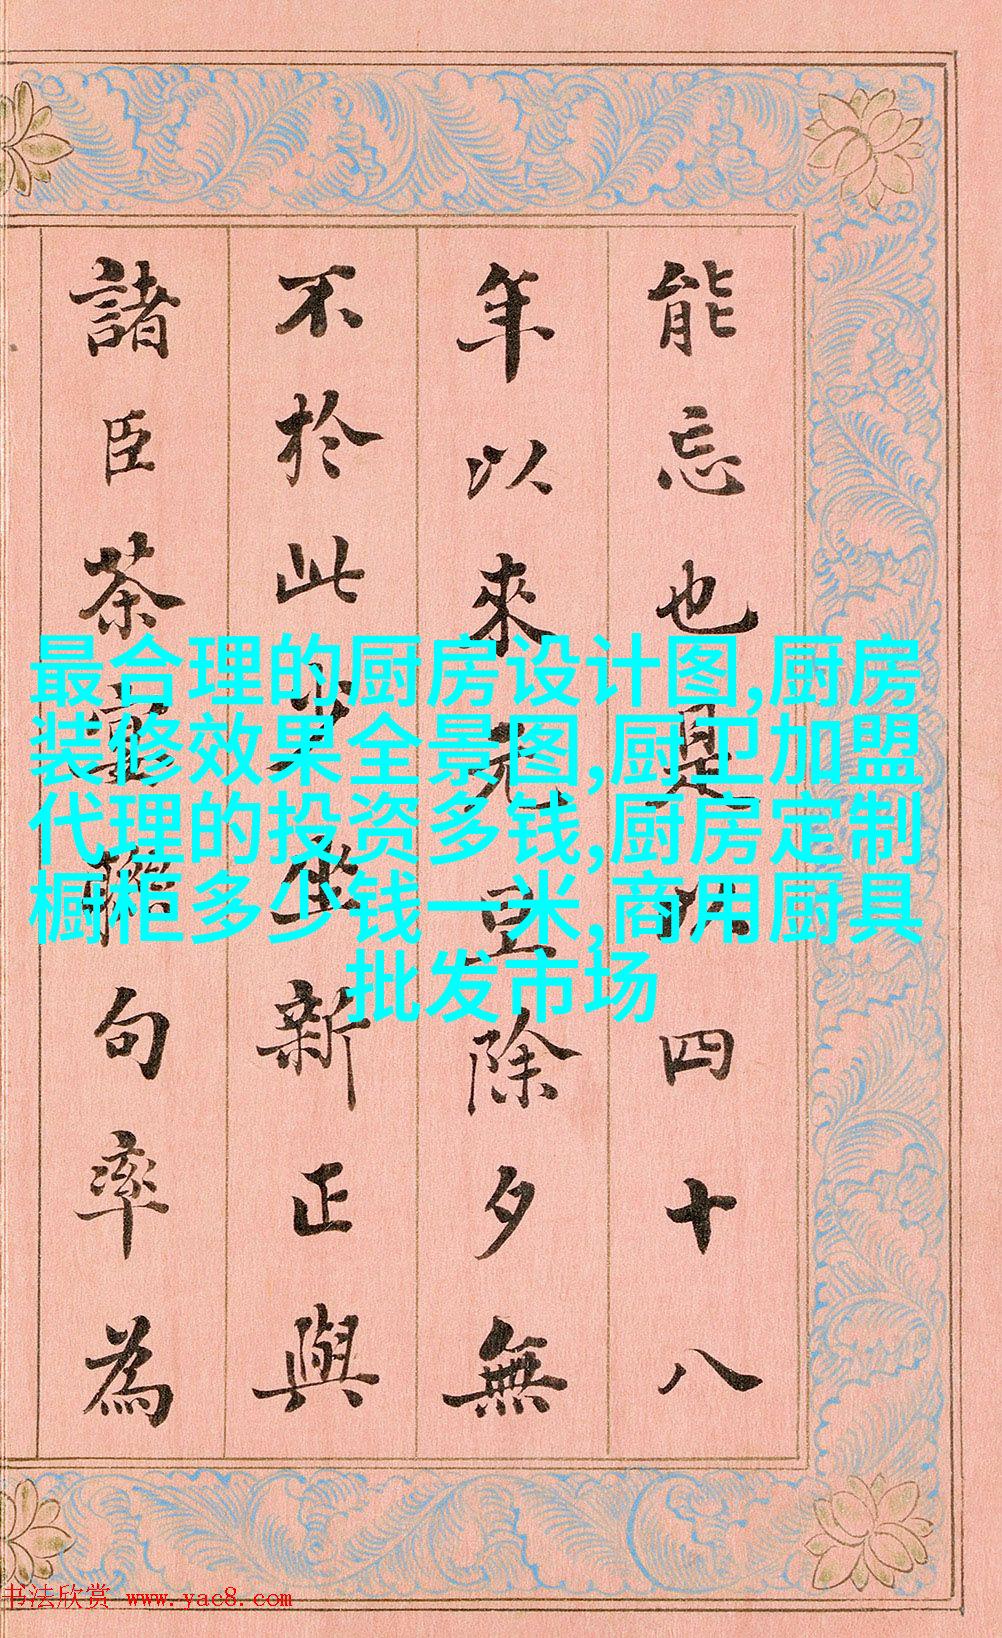 能忘也是以四十八
年以來元旦除夕無
不於此少坐新正與
諸臣茶宴聯句率為
最合理的厨房设计图,厨房
装修效果全景图,厨卫加盟
代理的投资多钱,厨房定制
橱柜多少钱一米,商用厨具
批发市场
书法欣赏 www.yac8.com